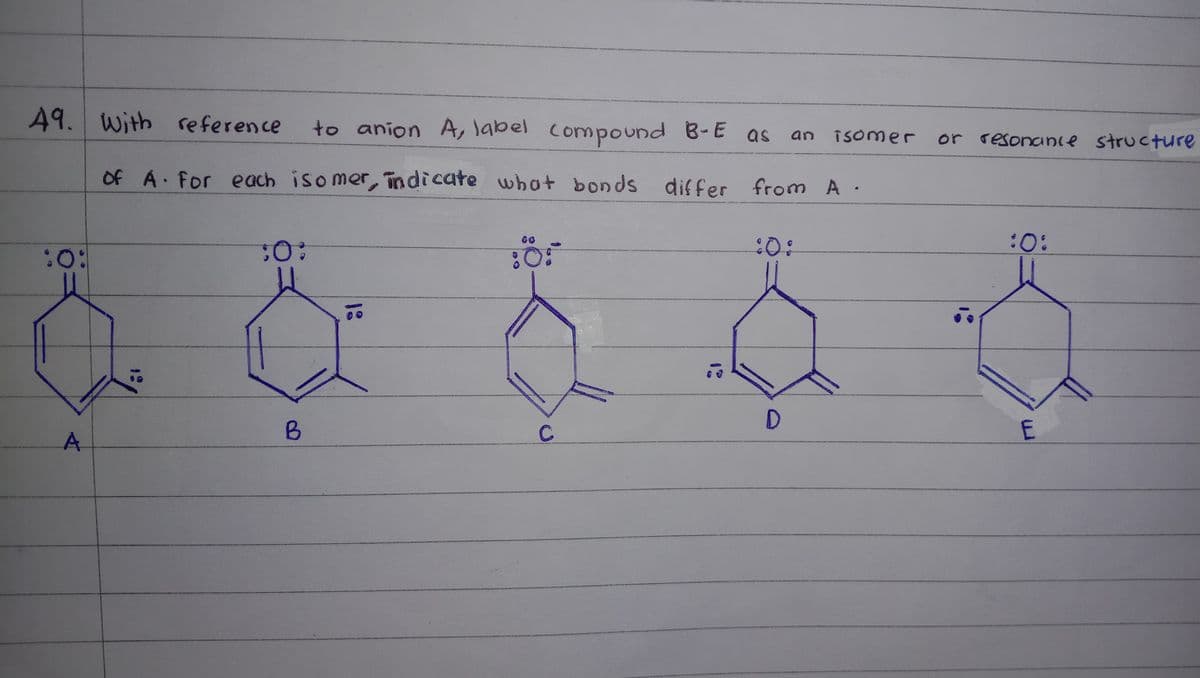 A9. With reference to anion A, label compound B-E as an isomer or resonance structure
of A. For each isomer, indicate what bonds differ from A.
:O: :O: :Ö:⁻ :O: :O:
A B C D E